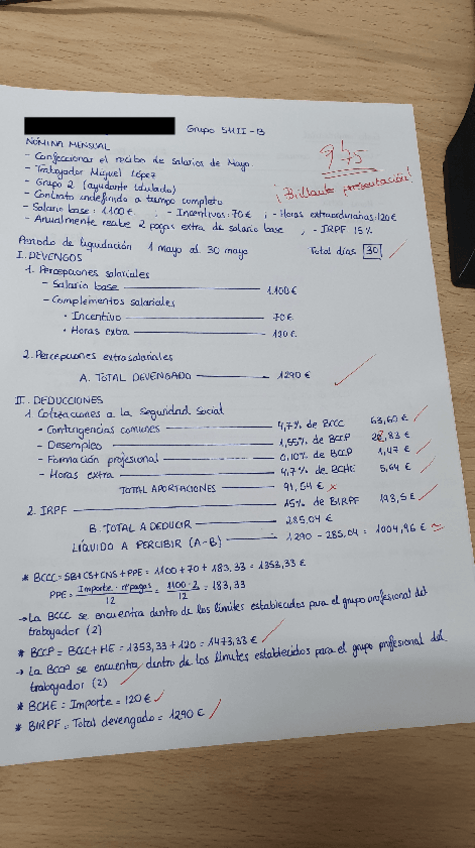 Grupo SMII-B
9'75
¡Brillante presentación!
NÓMINA MENSUAL
- Confeccionar el recibo de Salarios de Mayo.
- Trabajador Miguel López
- Grupo 2 (ayudante titulado)
- Contrato indefinido a tiempo completo
- Salario base: 1100€ ; - Incentivos: 70€ ; - Horas extraordinarias: 120€
- Anualmente recibe 2 pagas extra de salario base , - IRPF 15%
Periodo de liquidación 1 mayo al 30 mayo Total días 30
I. DEVENGOS
1. Percepciones salariales
- Salario base 1.100€
- Complementos salariales
• Incentivo 70€
• Horas extra 120€
2. Percepciones extrasalariales
A. TOTAL DEVENGADO 1290€
II. DEDUCCIONES
1 Cotizaciones a la Seguridad Social
- Contingencias comunes 4,7% de BCCC 63,60€
- Desempleo 1,55% de BCCP 22,83€
- Formación profesional 0,10% de BCCP 1,47€
- Horas extra 4,7% de BCHE 5,64€
TOTAL APORTACIONES 91,54€ x
2. IRPF 15% de BIRPF 193,5€
B. TOTAL A DEDUCIR 285,04€
LÍQUIDO A PERCIBIR (A-B) 1290 - 285,04 = 1004,96€
* BCCC = SB+CS+CNS+PPE = 1100+70+183,33 = 1353,33€
PPE = Importe · nº pagas / 12 = 1100·2 / 12 = 183,33
→ La BCCC se encuentra dentro de los límites establecidos para el grupo profesional del
trabajador (2)
* BCCP = BCCC+HE = 1353,33+120 = 1473,33€
→ La BCCP se encuentra dentro de los límites establecidos para el grupo profesional del
trabajador (2)
* BCHE = Importe = 120€
* BIRPF = Total devengado = 1290€